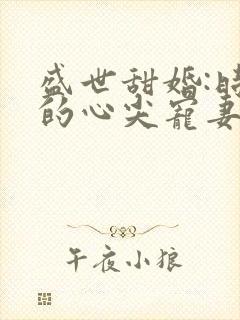 盛世甜婚:
的心尖宠妻
午夜小狼